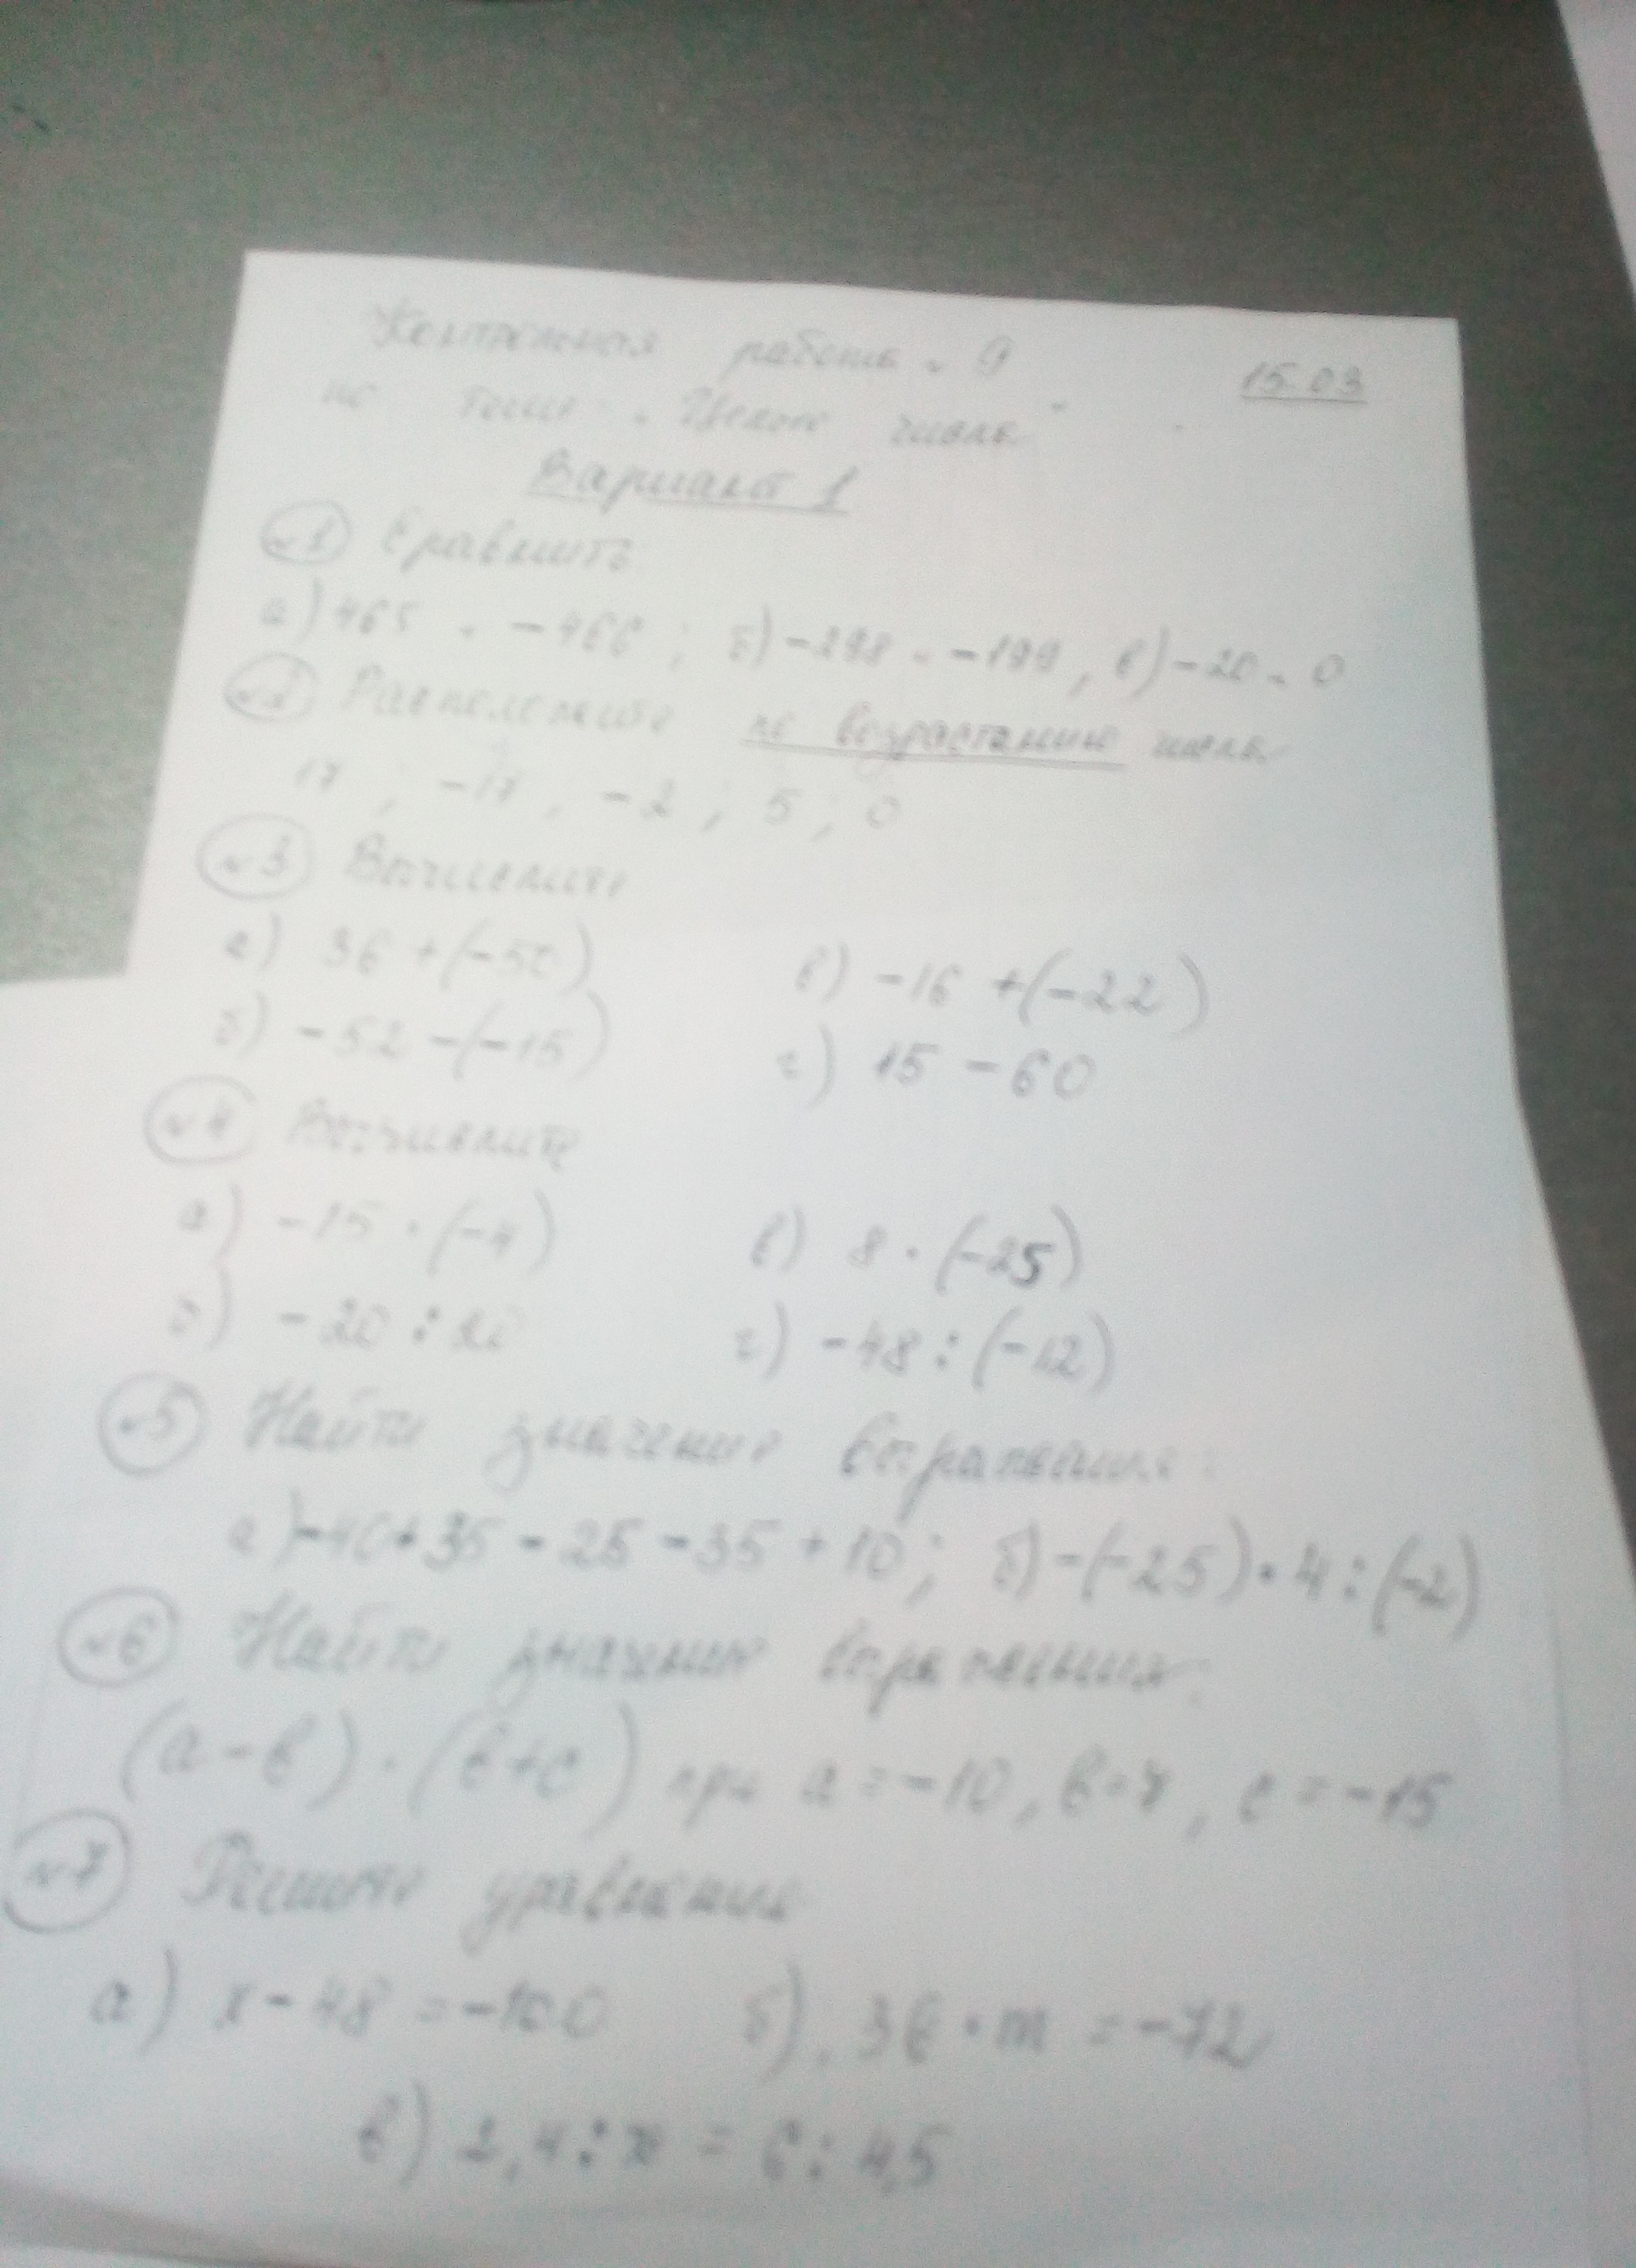 Контрольная работа № 9 15.03
по теме „Целые числа"
Вариант 1
№1 Сравнить
а) 465 и -466 ; б) -298 и -199, в) -20 и 0
№2 Расположите по возрастанию числа
17 ; -17 ; -2 ; 5 ; 0
№3 Вычислите
а) 36 +(-50) в) -16 +(-22)
б) -52 -(-15) г) 15 - 60
№4 Вычислите
а) -15 · (-4) в) 8 · (-25)
б) -20 : 20 г) -48 : (-12)
№5 Найти значение выражения :
а) -40+35 - 25 - 35 + 10 ; б) -(-25) · 4 : (-2)
№6 Найти значение выражения:
(а - в) · (в + с) при а = -10, в = , с = -15
№7 Решите уравнения
а) x - 48 = -100 б) 36 · m = -72
в) 2,4 : x = 6 : 4,5